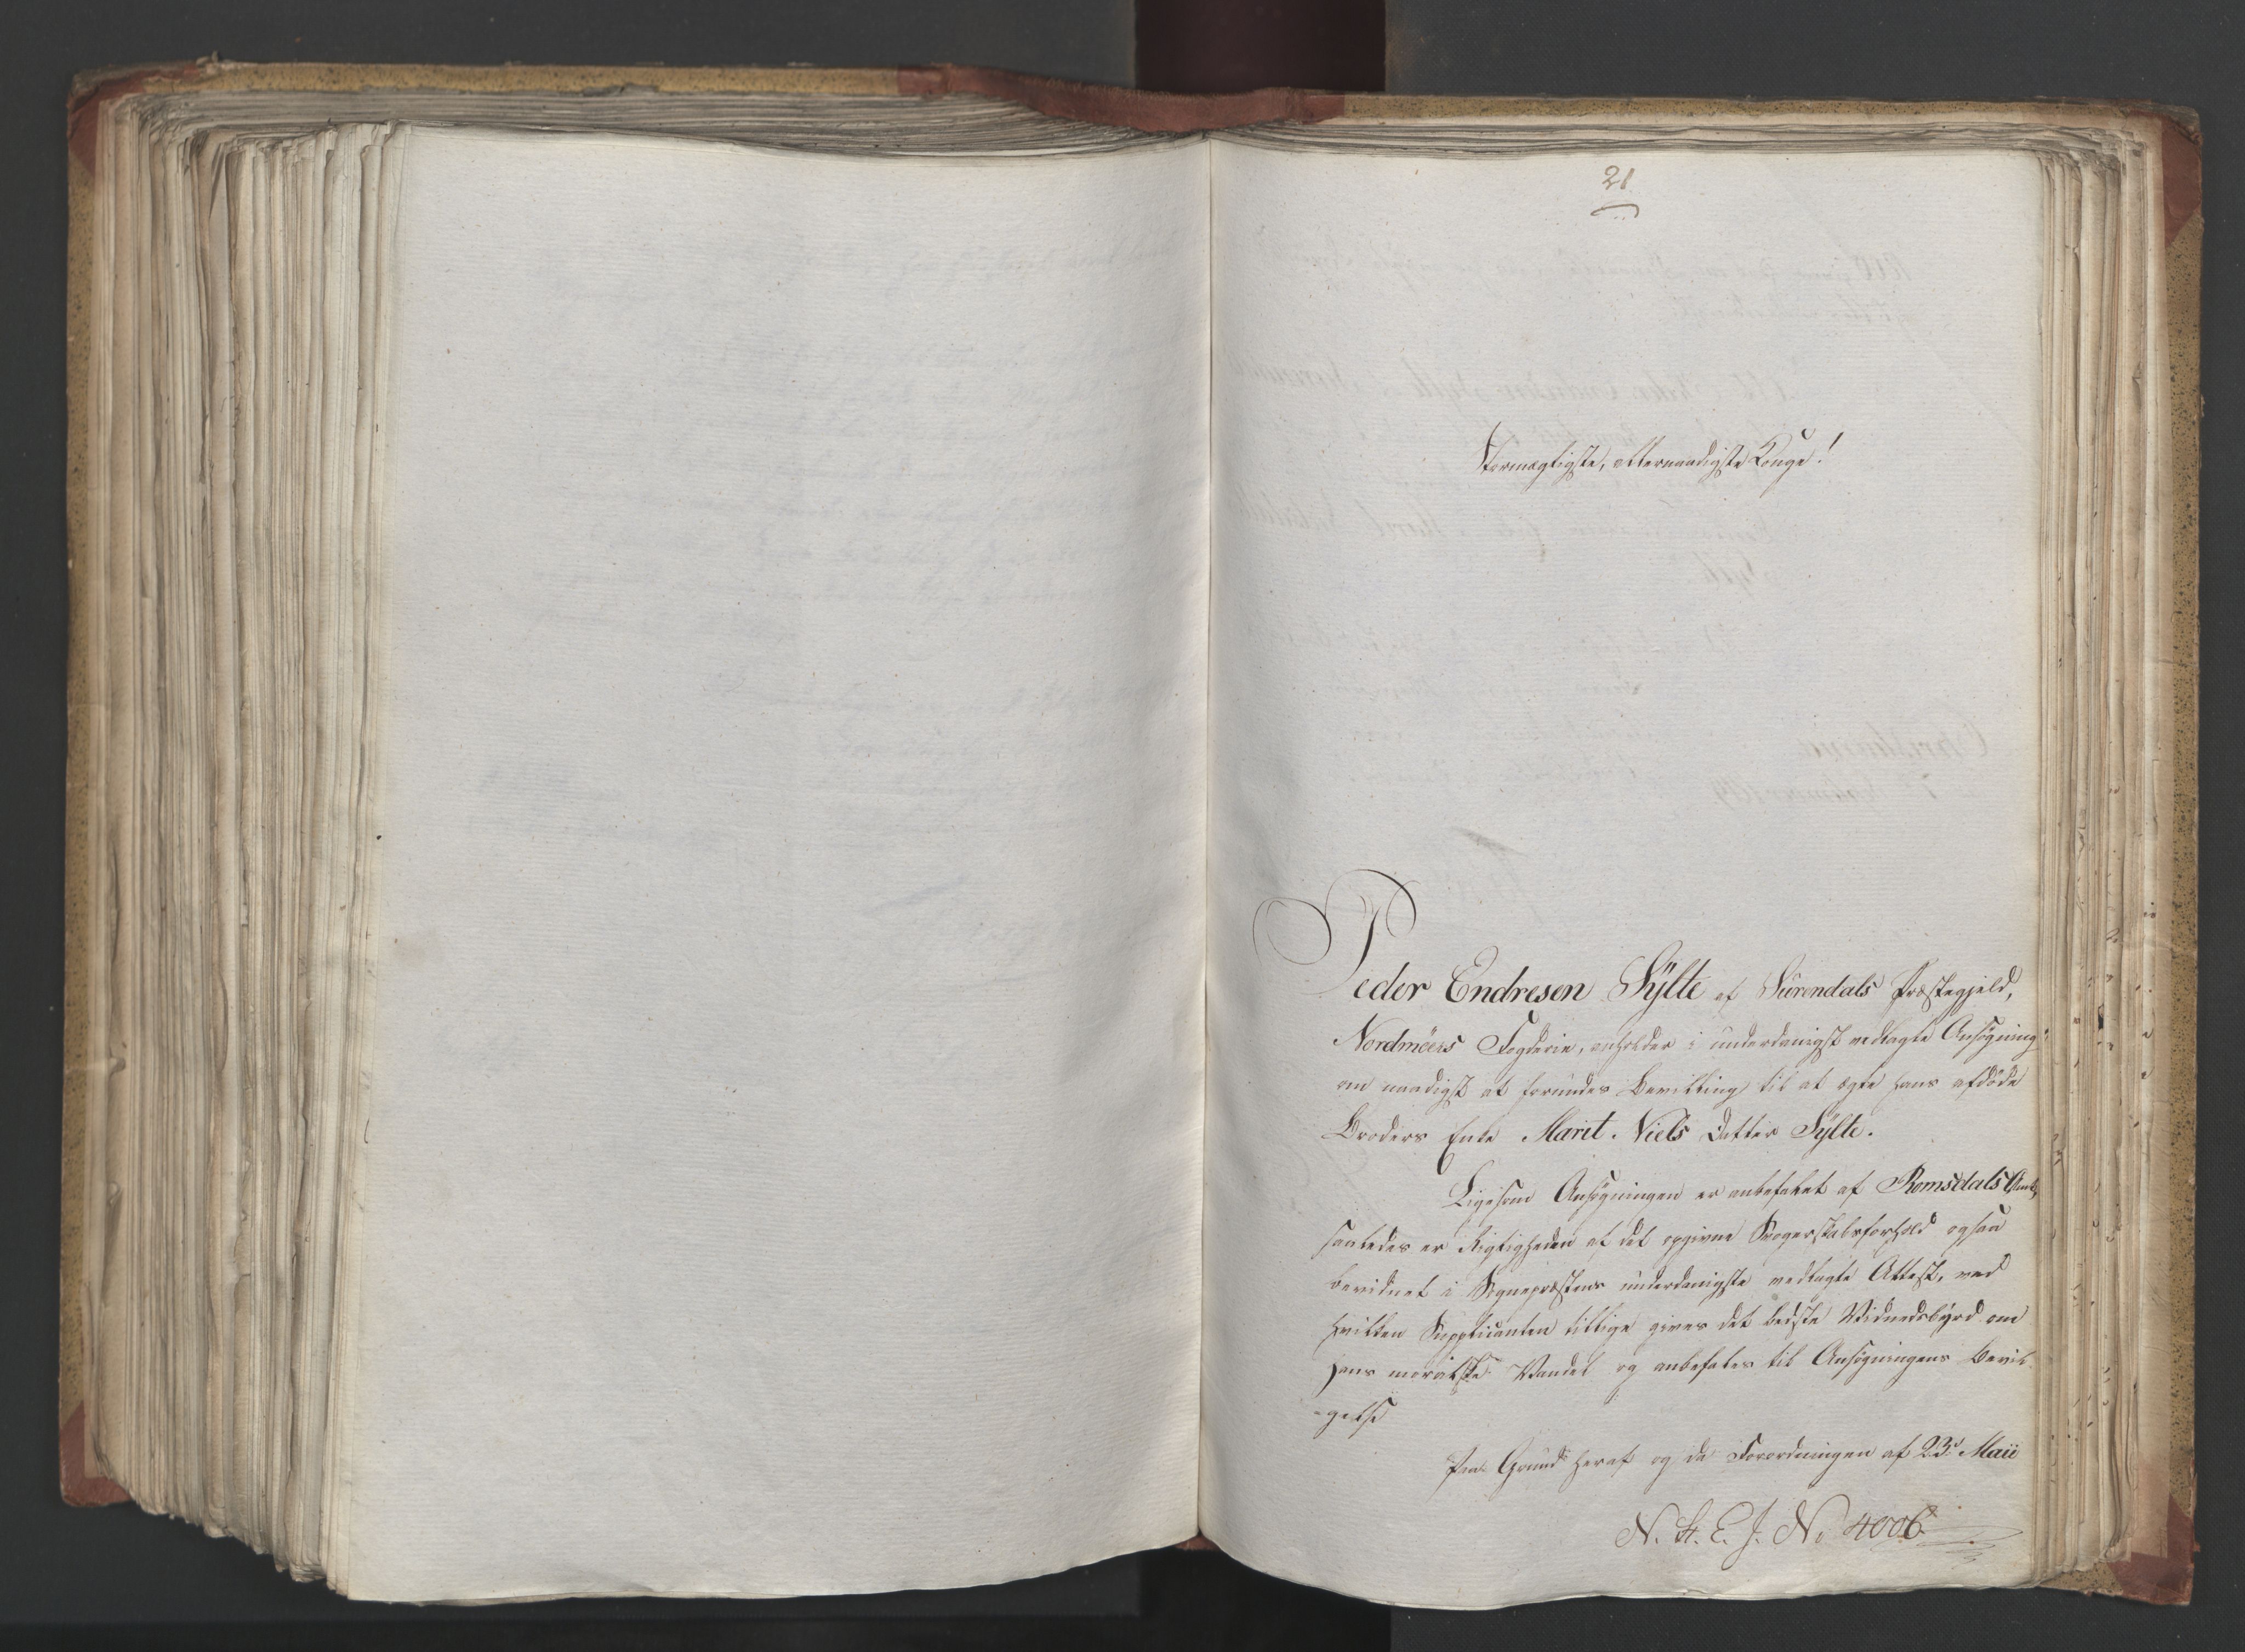 21
Stormægtigste, allernaadigste Konge!
Peder Endresen Sÿlte af Sürendals Præstegjeld,
Nordmöers Fogderie, anholder i underdanigst vedlagte Ansögning
om naadigst at forundes Bevilling til at ægte hans afdöde
Broders Enke Marit Niels Datter Sÿlte.
Ligesom Ansögningen er anbefalet af Romsdals Amt,
saaledes er Rigtigheden af det opgivne Svogerskabsforhold ogsaa
bevidnet i Sognepræstens underdanigste vedlagte Attest, ved
hvilken Supplicanten tillige gives det bedste Vidnedsbÿrd om
hans moralske Vandel og anbefales til Ansögningens Bevil-
-gelse
Paa Grund heraf og da Forordningen af 23d Maii
N. H. E. J. No 4006